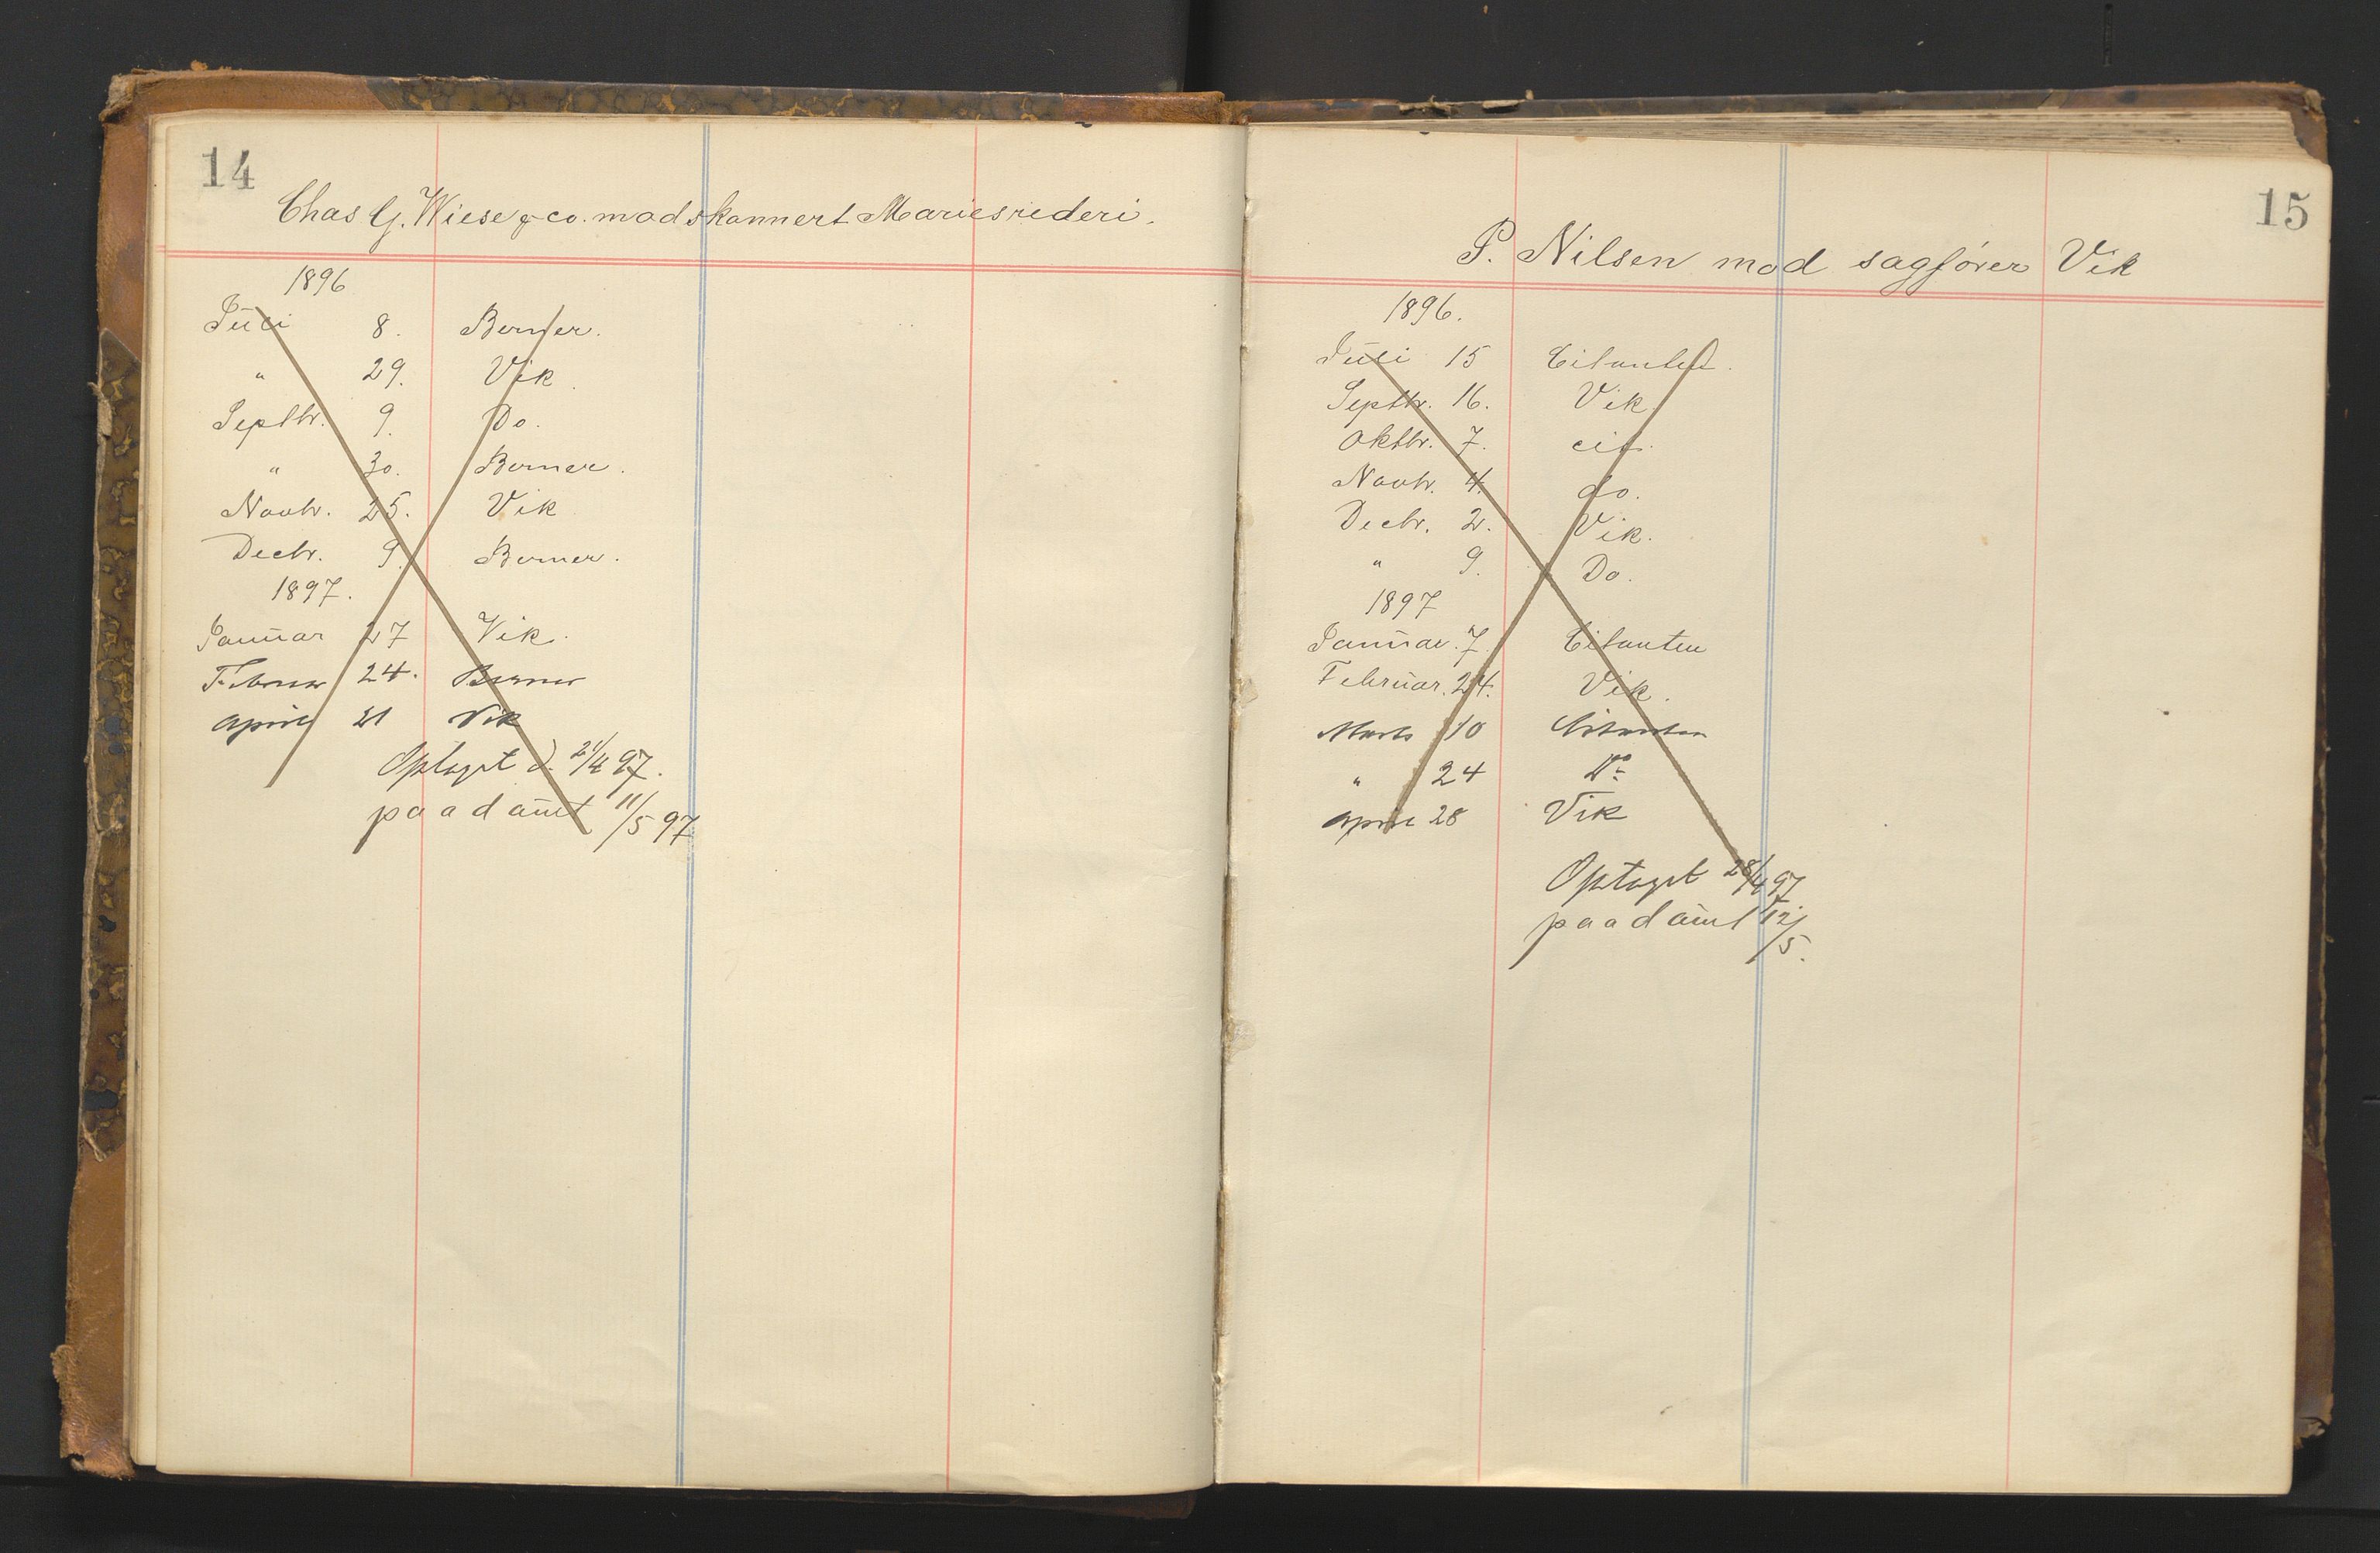 14
Chas G. Wiese & co. mod skonnert Maries rederi.
1896
Juli 8. Berner.
" 29. Vik
Septbr. 9. Do.
" 30. Berner.
Novbr. 25. Vik
Decbr. 9. Berner.
1897.
Januar 27 Vik.
Februar 24. Berner
April 21 Vik
Optaget d. 21/4 97.
paadømt 11/5 97
15
P. Nilsen mod sagfører Vik
1896.
Juli 15 Citanten.
Septbr. 16. Vik
Oktbr. 7. cit.
Novbr. 4. do.
Decbr. 2. Vik.
" 9. Do.
1897
Januar. 7. Citanten
Februar. 24. Vik.
Marts 10 Citanten
" 24 Do
April 28 Vik
Optaget 28/4 97
paadømt 12/5.